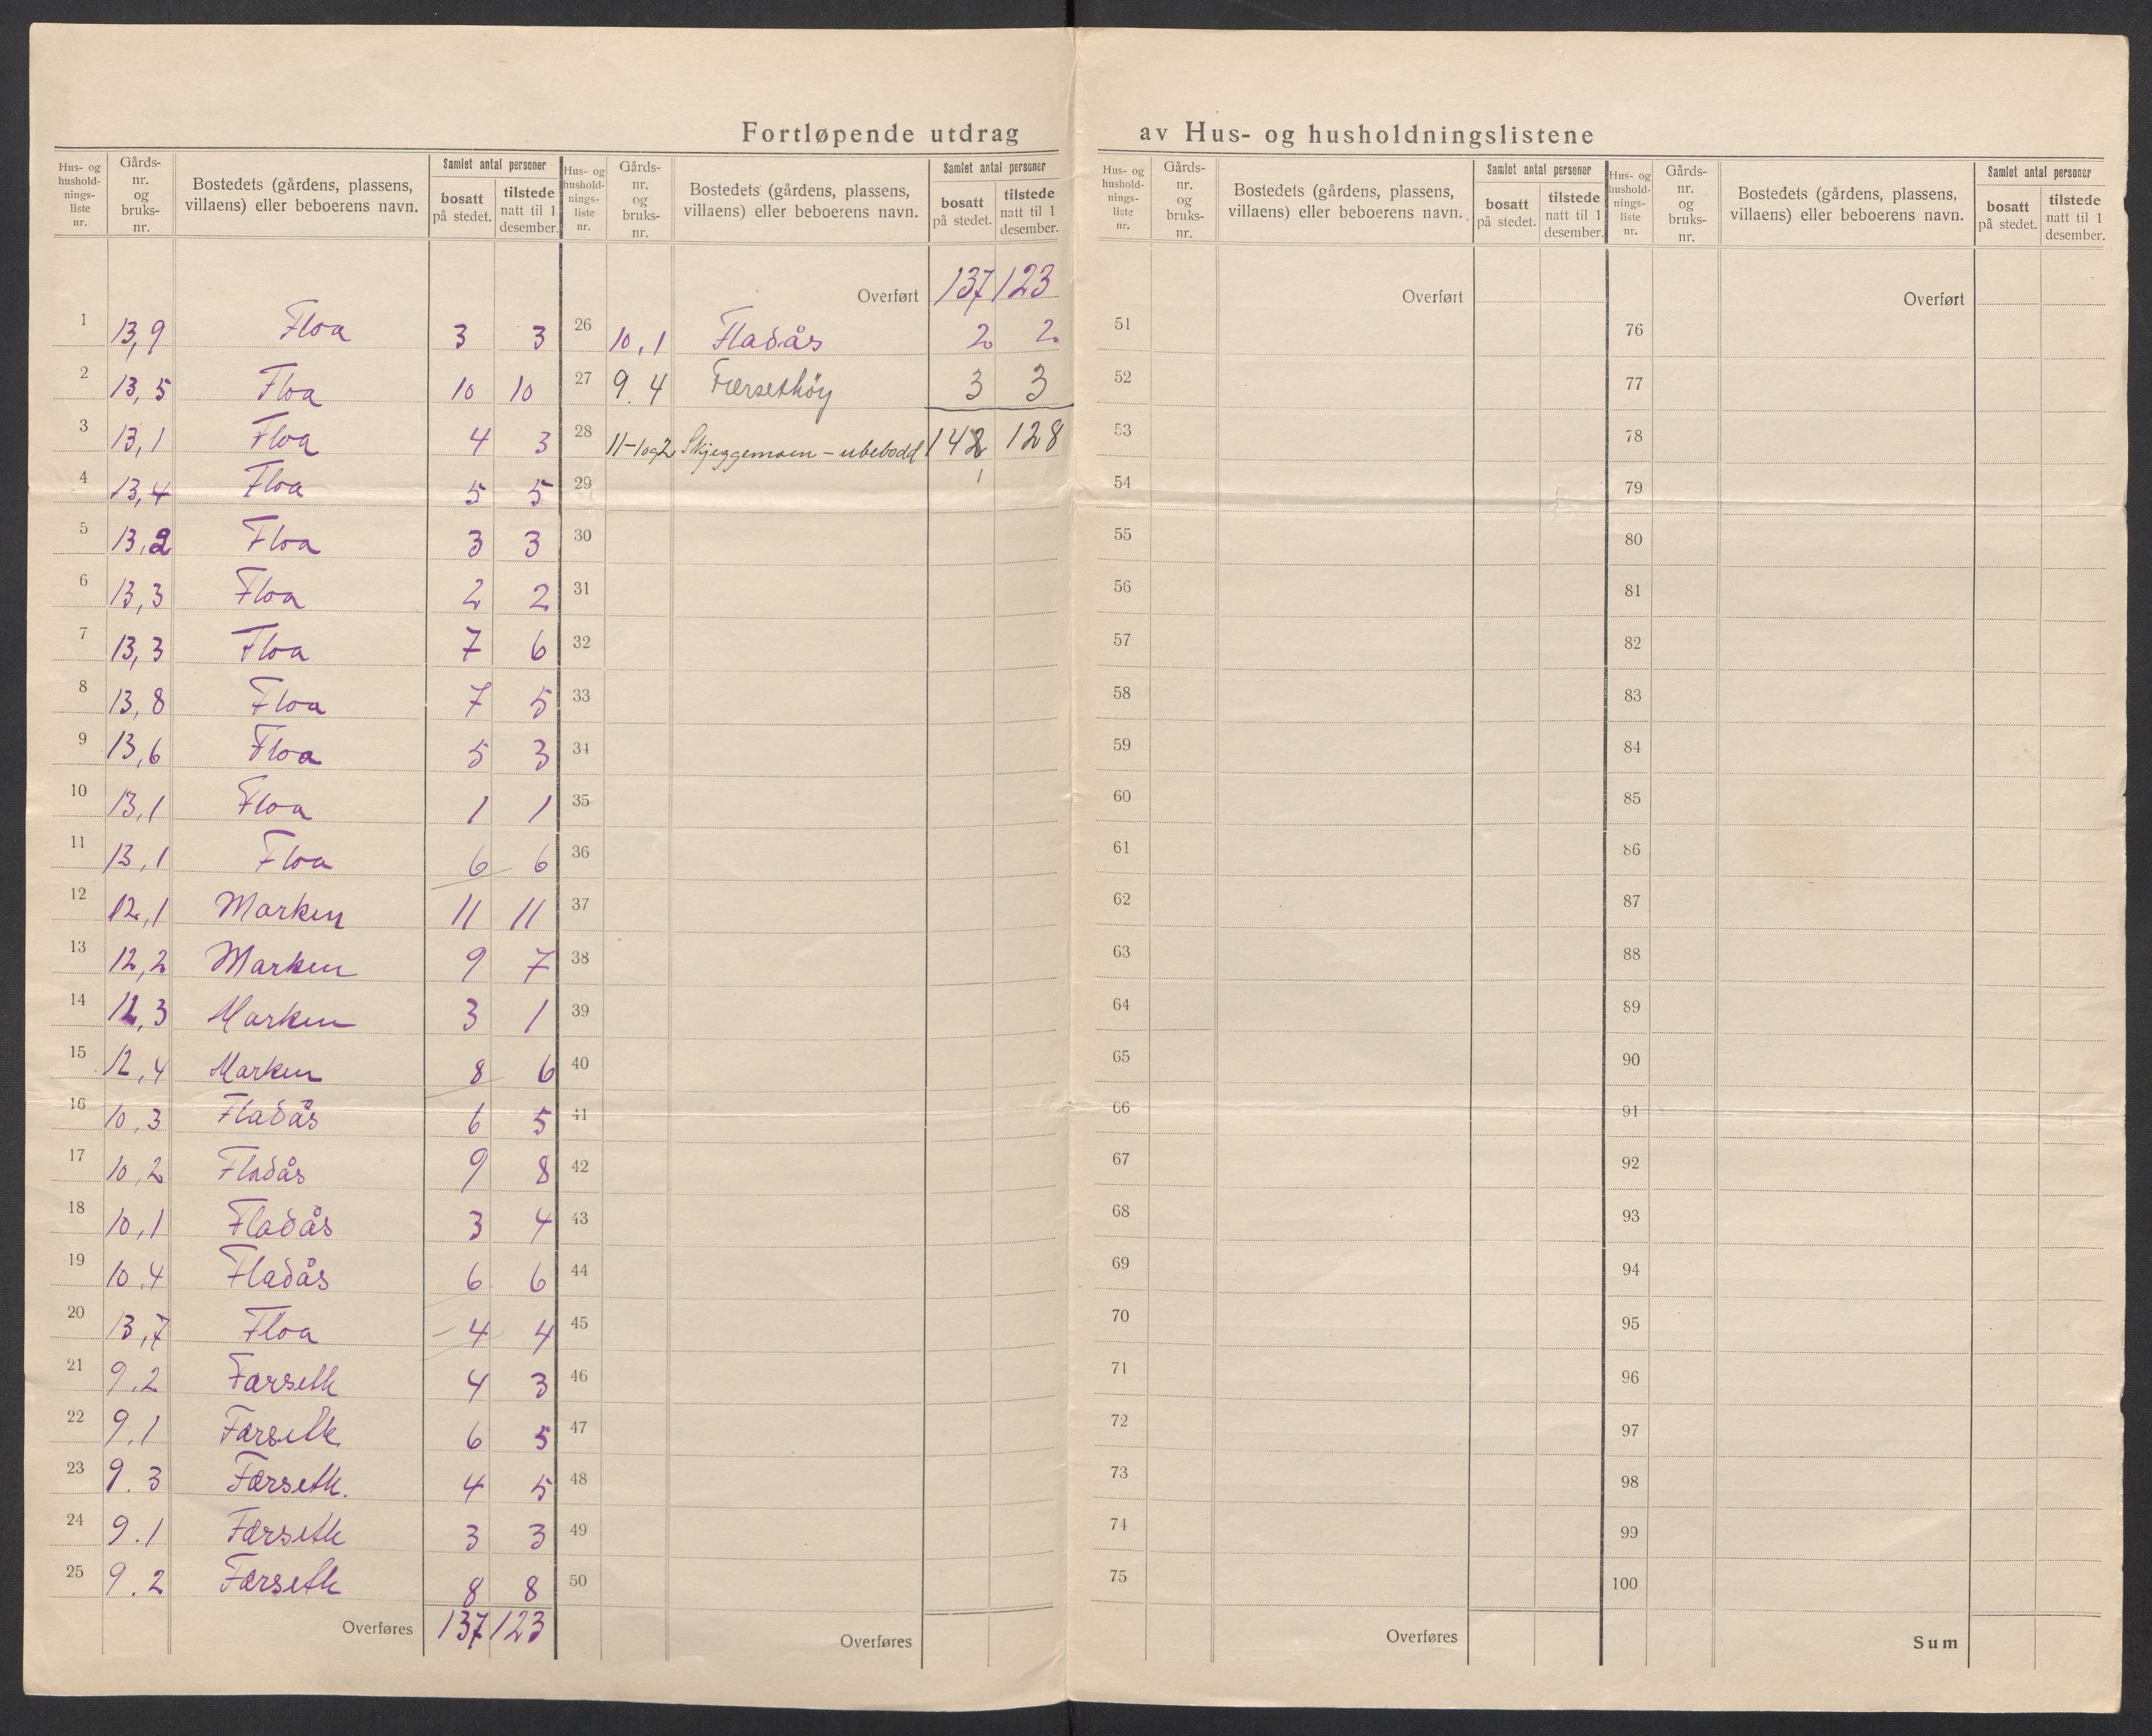 Fortløpende utdrag av Hus- og husholdningslistene
Hus- og hushold-nings-liste nr. Gårds-nr. og bruks-nr. Bostedets (gårdens, plassens, villaens) eller beboerens navn. Samlet antal personer bosatt på stedet. tilstede natt til 1 desember.
1 13,9 Floa 3 3
2 13,5 Floa 10 10
3 13,1 Floa 4 3
4 13,4 Floa 5 5
5 13,2 Floa 3 3
6 13,3 Floa 2 2
7 13,3 Floa 7 6
8 13,8 Floa 7 5
9 13,6 Floa 5 3
10 13,1 Floa 1 1
11 13,1 Floa 6 6
12 12,1 Marken 11 11
13 12,2 Marken 9 7
14 12,3 Marken 3 1
15 12,4 Marken 8 6
16 10,3 Fladås 6 5
17 10,2 Fladås 9 8
18 10,1 Fladås 3 4
19 10,4 Fladås 6 6
20 13,7 Floa 4 4
21 9.2 Færseth 4 3
22 9.1 Færseth 6 5
23 9.3 Færseth. 4 5
24 9.1 Færseth 3 3
25 9.2 Færseth 8 8
Overføres 137 123
Hus- og hushold-nings-liste nr. Gårds-nr. og bruks-nr. Bostedets (gårdens, plassens, villaens) eller beboerens navn. Samlet antal personer bosatt på stedet. tilstede natt til 1 desember.
Overført 137 123
26 10,1 Fladås 2 2
27 9.4 Færsethöy 3 3
28 11-1og2 Skjeggemoen - ubebodd 142 128
29
30
31
32
33
34
35
36
37
38
39
40
41
42
43
44
45
46
47
48
49
50
Overføres
Hus- og hushold-nings-liste nr. Gårds-nr. og bruks-nr. Bostedets (gårdens, plassens, villaens) eller beboerens navn. Samlet antal personer bosatt på stedet. tilstede natt til 1 desember.
Overført
51
52
53
54
55
56
57
58
59
60
61
62
63
64
65
66
67
68
69
70
71
72
73
74
75
Overføres
Hus- og hushold-nings-liste nr. Gårds-nr. og bruks-nr. Bostedets (gårdens, plassens, villaens) eller beboerens navn. Samlet antal personer bosatt på stedet. tilstede natt til 1 desember.
Overført
76
77
78
79
80
81
82
83
84
85
86
87
88
89
90
91
92
93
94
95
96
97
98
99
100
Sum